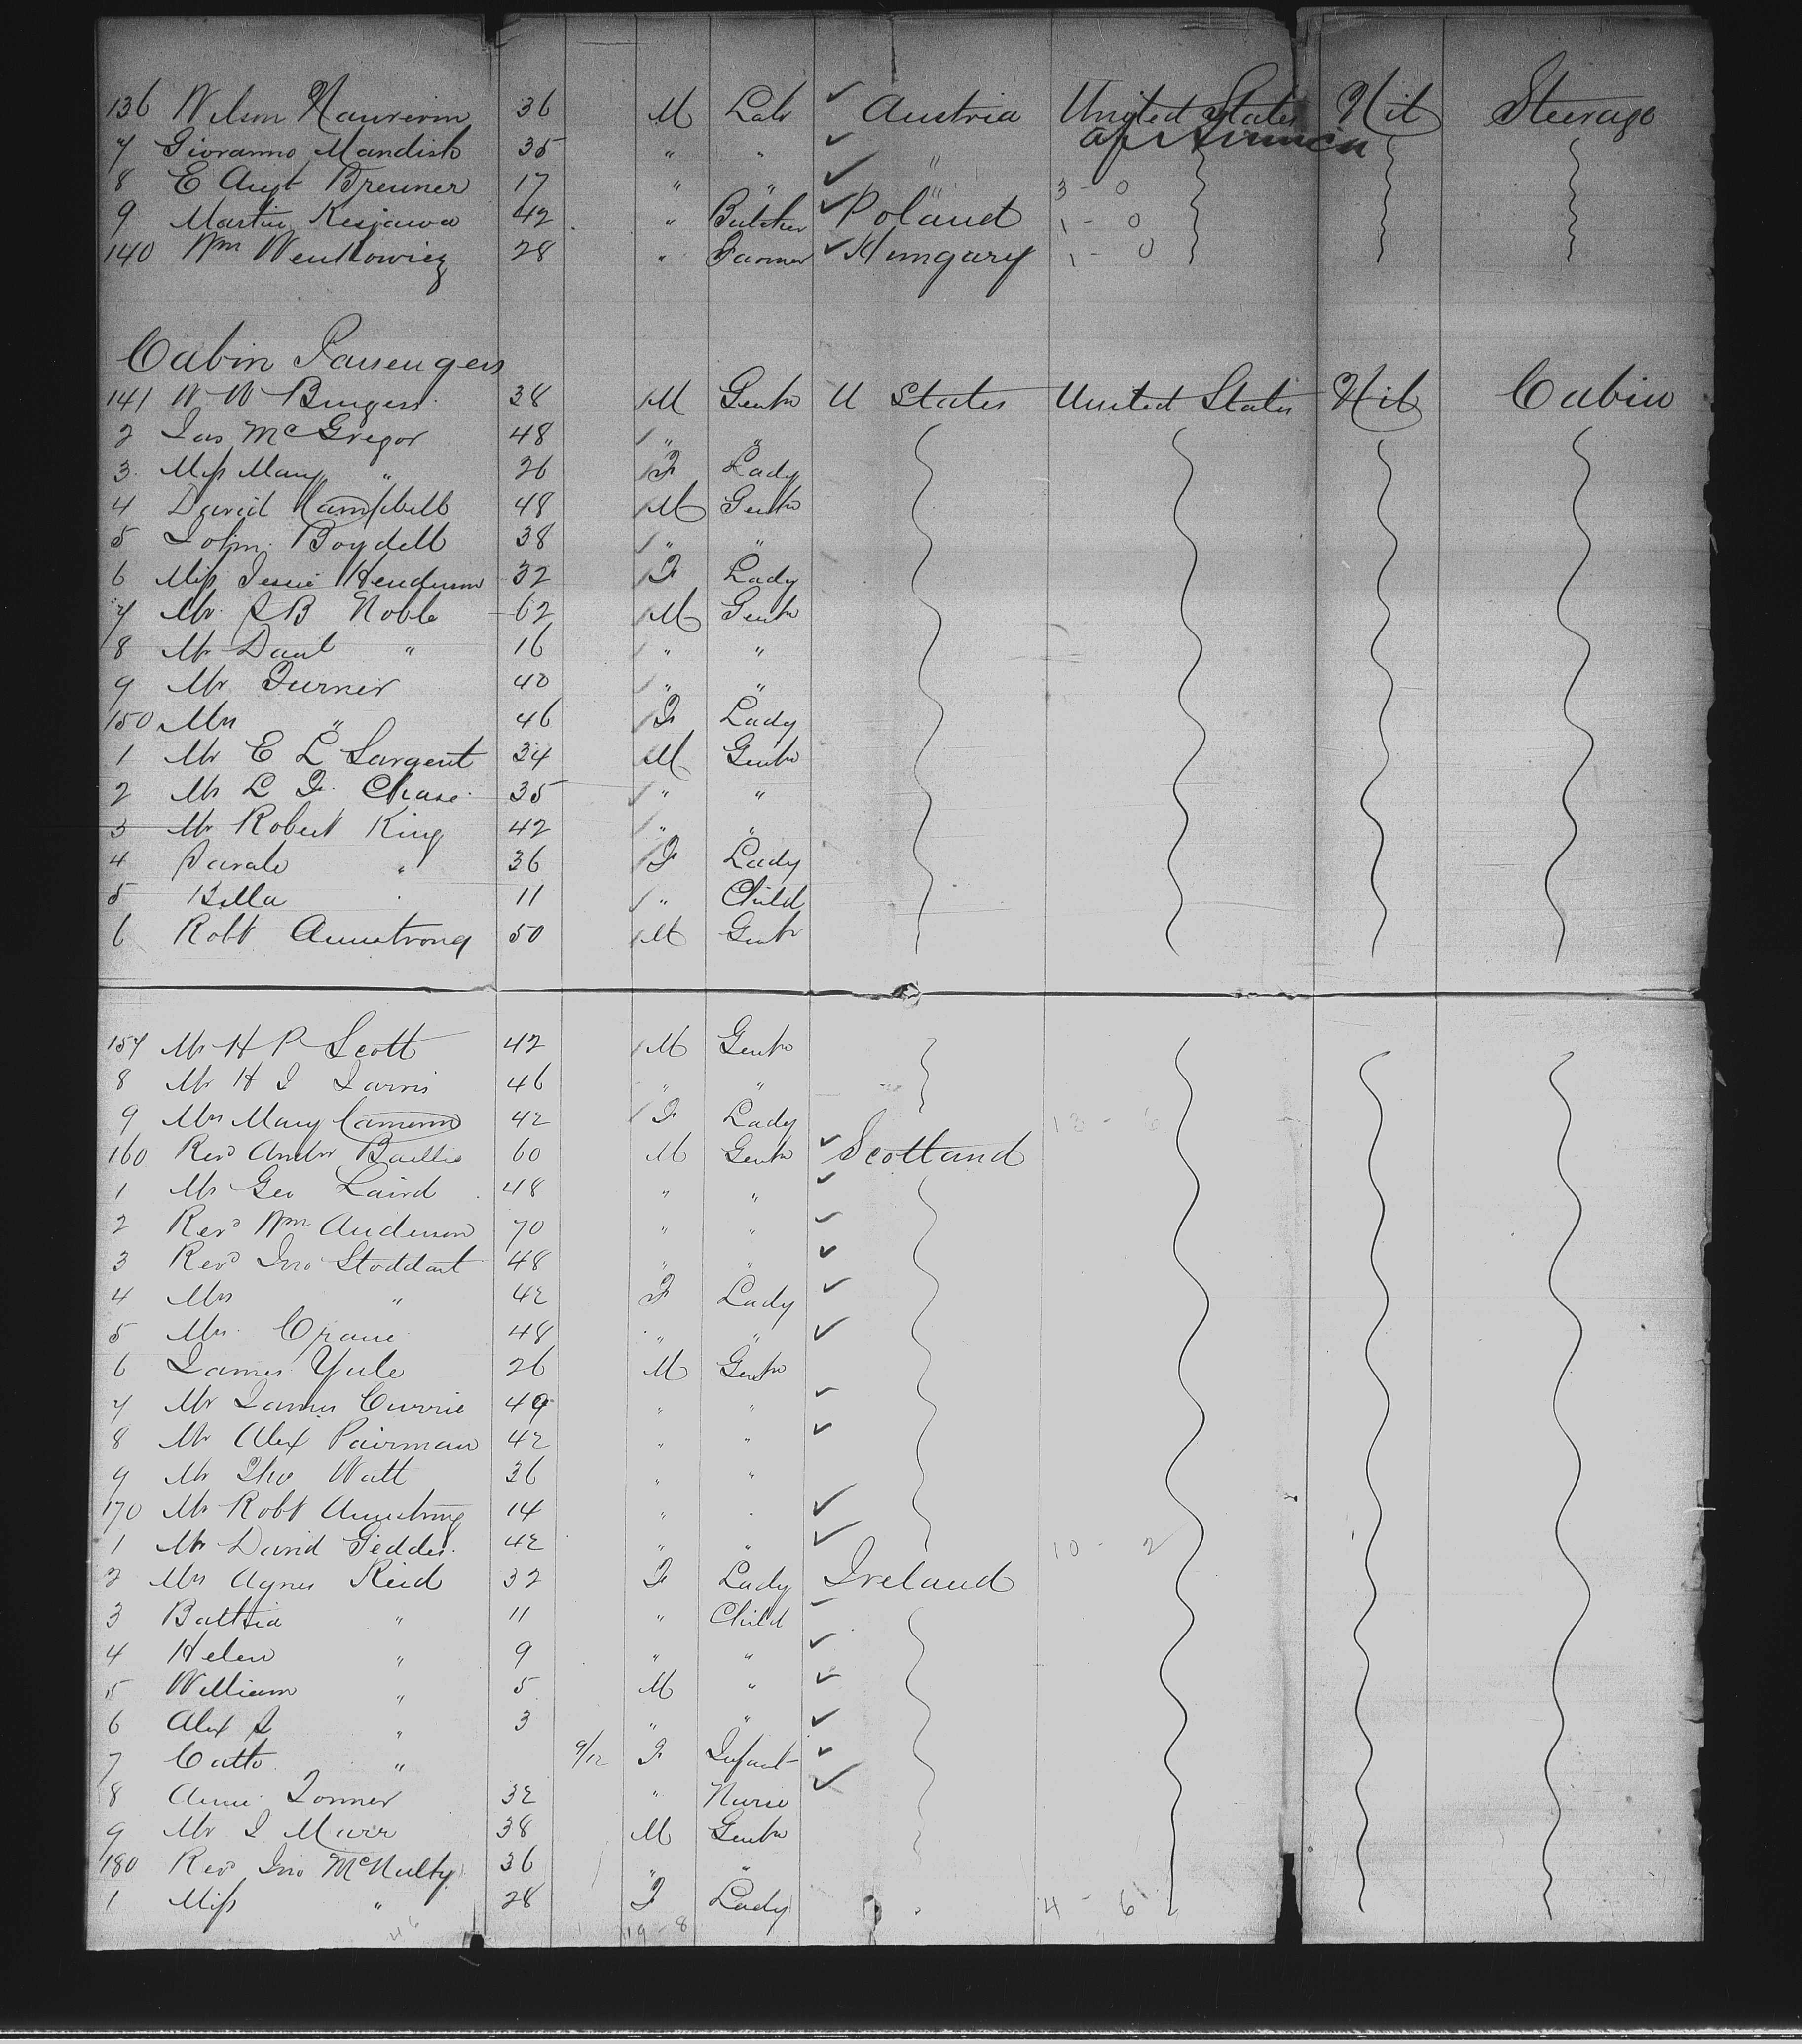 136 Wilson 36 M Labr ✓ Austria United States Nil Steerage
of America
7 Giovanno Mandish 35 " " ✓ "
8 E Augt Brenner 17 " " ✓ " 3 - 0
9 Martin Kesjawa 42 " Butcher ✓ Poland 1 - 0
140 Wm Wentkowicz 28 " Farmer ✓ Hungary 1 - 0
Cabin Passengers
141 W W Burgess 38 M Gentn U States United States Nil Cabin
2 Jas McGregor 48 " "
3 Miss Mary " 26 F Lady
4 David Campbell 48 M Gentn
5 John Boydell 38 " "
6 Miss Jessie Henderson 32 F Lady
7 Mr S B Noble 62 M Gentn
8 Mr Danl " 16 " "
9 Mr Turner 40 " "
150 Mrs " 46 F Lady
1 Mr E L Sargent 34 M Gentn
2 Mr L F Chase 35 " "
3 Mr Robert King 42 " "
4 Sarah " 36 F Lady
5 Bella " 11 " Child
6 Robt Armstrong 50 M Gentn
157 Mr H P Scott 42 M Gentn
8 Mr H J Jarvis 46 " "
9 Mrs Mary Cameron 42 F Lady 13 - 6
160 Revd Andw Baillie 60 M Gentn ✓ Scotland
1 Mr Geo Laird 48 " " ✓
2 Revd Wm Anderson 70 " " ✓
3 Revd Jno Stoddart 48 " " ✓
4 Mrs " 42 F Lady ✓
5 Mrs Crane 48 " " ✓
6 James Yule 26 M Gentn
7 Mr James Currie 49 " " ✓
8 Mr Alex Pairman 42 " " ✓
9 Mr Tho Watt 36 " "
170 Mr Robt Armstrong 14 " " ✓
1 Mr David Geddes 42 " " ✓ 10 - 2
2 Mrs Agnes Reid 32 F Lady Ireland
3 Bathia " 11 " Child ✓
4 Helen " 9 " " ✓
5 William " 5 M " ✓
6 Alex S " 3 " " ✓
7 Catto " 9/12 F Infant ✓
8 Annie Tonner 32 " Nurse ✓
9 Mr J Marr 38 M Gentn
180 Revd Jno McNulty 36 " "
1 Miss " 28 F Lady 4 - 6
19 - 8